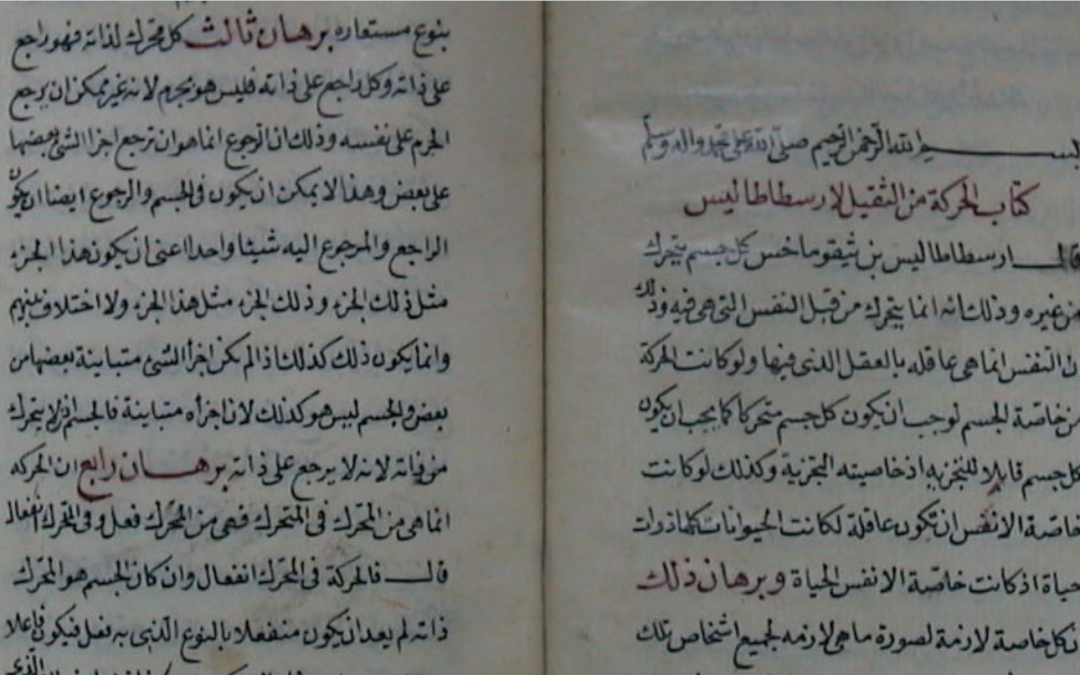 بسم الله الرحمن الرحيم صلى الله على محمد واله وسلم
كتاب الحركة من الثقيل لارسطاطاليس
قال ارسطاطاليس بن نيقوماخس كل جسم يتحرك
من غيره وذلك انه انما يتحرك من قبل النفس التى هى فيه وذلك
ان النفس انما هى عاقله بالعقل الذى فيها ولو كانت الحركة
من خاصة الجسم لوجب ان يكون كل جسم متحركا كما يجب ان يكون
كل جسم قابلا للتجزيه اذ خاصيته التجزية وكذلك لو كانت
خاصة الانفس ان تكون عاقلة لكانت الحيوانات كلها ذوات
حياة اذ كانت خاصة الانفس الحياة وبرهان ذلك
ان كل خاصة لازمة لصورة ما هى لازمه لجميع اشخاص تلك
بنوع مستعاره برهان ثالث كل محرك لذاته فهو راجع
على ذاته وكل راجع على ذاته فليس هو بجرم لانه غير ممكن ان يرجع
الجرم على نفسه وذلك ان الرجوع انما هو ان ترجع اجزا الشئ بعضها
على بعض وهذا لا يمكن ان يكون فى الجسم والرجوع ايضا ان يكون
الراجع والمرجوع اليه شيئا واحدا اعنى ان يكون هذا الجزء
مثل ذلك الجزء وذلك الجزء مثل هذا الجزء ولا اختلاف بينهم
وانما يكون ذلك كذلك اذا لم يكن اجزأ الشئ متباينة بعضها من
بعض والجسم ليس هو كذلك لان اجزأه متباينة فالجسم اذ لا يتحرك
من ذاته لانه لا يرجع على ذاته برهان رابع ان الحركه
انما هى من المحرك فى المتحرك فهى من المحرك فعل وفى المتحرك انفعال
قال فالحركة فى المتحرك انفعال وان كان الجسم هو المحرك
ذاته لم يعد ان يكون منفعلا بالنوع الذى به فعل فيكون فاعلا
الذى